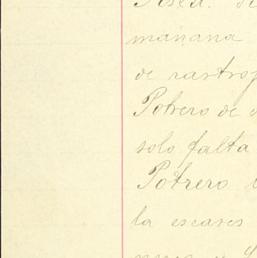 mañana
de rastroj
Potrero de
solo falta
Potrero
la escases